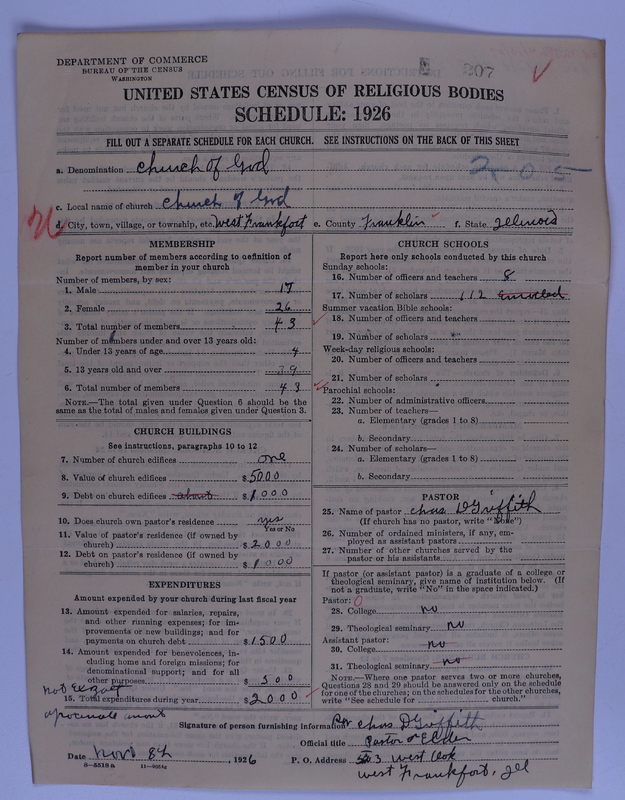 DEPARTMENT OF COMMERCE
BUREAU OF THE CENSUS
WASHINGTON
207
UNITED STATES CENSUS OF RELIGIOUS BODIES
SCHEDULE: 1926
FILL OUT A SEPARATE SCHEDULE FOR EACH CHURCH. SEE INSTRUCTIONS ON THE BACK OF THIS SHEET
a. Denomination Church of God
205
c. Local name of church Church of God
d. City, town, village, or township, etc. West Frankfort e. County Franklin f. State Illinois
MEMBERSHIP
Report number of members according to definition of
member in your church
Number of members, by sex:
1. Male 17
2. Female 26
3. Total number of members 43
Number of members under and over 13 years old:
4. Under 13 years of age 4
5. 13 years old and over 39
6. Total number of members 43
NOTE.—The total given under Question 6 should be
same as the total of males and females given under Question 3.
CHURCH BUILDINGS
See instructions, paragraphs 10 to 12
7. Number of church edifices one
8. Value of church edifices $5000
9. Debt on church edifices about $1000
10. Does church own pastor's residence yes
Yes or No
11. Value of pastor's residence (if owned by
church) $2000
12. Debt on pastor's residence (if owned by
church) $1000
EXPENDITURES
Amount expended by your church during last fiscal year
13. Amount expended for salaries, repairs,
and other running expenses; for im-
provements or new buildings; and for
payments on church debt $1500
14. Amount expended for benevolences, in-
cluding home and foreign missions; for
denominational support; and for all
other purposes $500
not
15. Total expenditures during year $2000
CHURCH SCHOOLS
Report here only schools conducted by this church
Sunday schools:
16. Number of officers and teachers 8
17. Number of scholars 112 enroled
Summer vacation Bible schools:
18. Number of officers and teachers
19. Number of scholars
Week-day religious schools:
20. Number of officers and teachers
21. Number of scholars
Parochial schools:
22. Number of administrative officers
23. Number of teachers—
a. Elementary (grades 1 to 8)
b. Secondary
24. Number of scholars—
a. Elementary (grades 1 to 8)
b. Secondary
PASTOR
25. Name of pastor Chas D Griffith
(If church has no pastor, write "None")
26. Number of ordained ministers, if any, em-
ployed as assistant pastors
27. Number of other churches served by the
pastor or his assistants
If pastor (or assistant pastor) is a graduate of a college or
theological seminary, give name of institution below. (If
not a graduate, write "No" in the space indicated.)
Pastor: 0
28. College no
29. Theological seminary no
Assistant pastor:
30. College no
31. Theological seminary no
NOTE.—Where one pastor serves two or more churches,
Questions 28 and 29 should be answered only on the schedule
for one of the churches; on the schedules for the other churches,
write "See schedule for church."
Signature of person furnishing information Rev Chas D Griffith
Official title Pastor or Elder
Date Nov 8th, 1926 P. O. Address 503 West Oak
West Frankfort, Ill